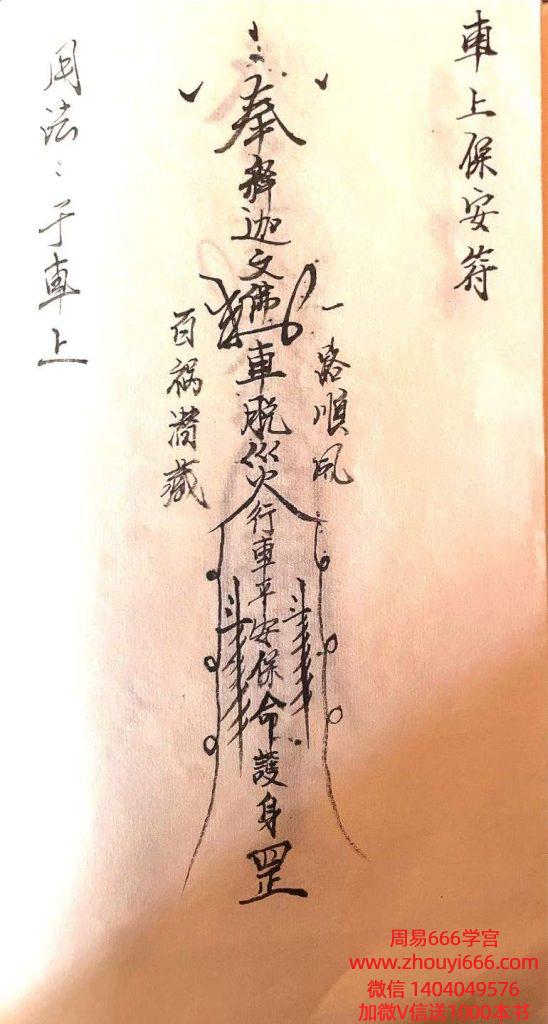 車上保安符
一路順风
奉释迦文佛
車脱災行車平安保命護身罡
百祸消藏
用法:于車上
周易666学宫
www.zhouyi666.com
微信 1404049576
加微V信送1000本书